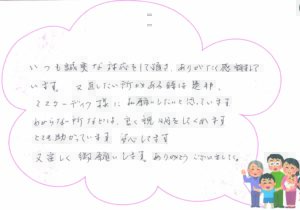 いつも誠実な対応をして頂き、ありがたく感謝して
います。又直したい所がある時は是非、
ミスターデイク様にお願いしたいと思っています
わからない所などは、良く説明をしてくれます
とても助かっています 安心してます
又宜しく御願いします ありがとうございました。